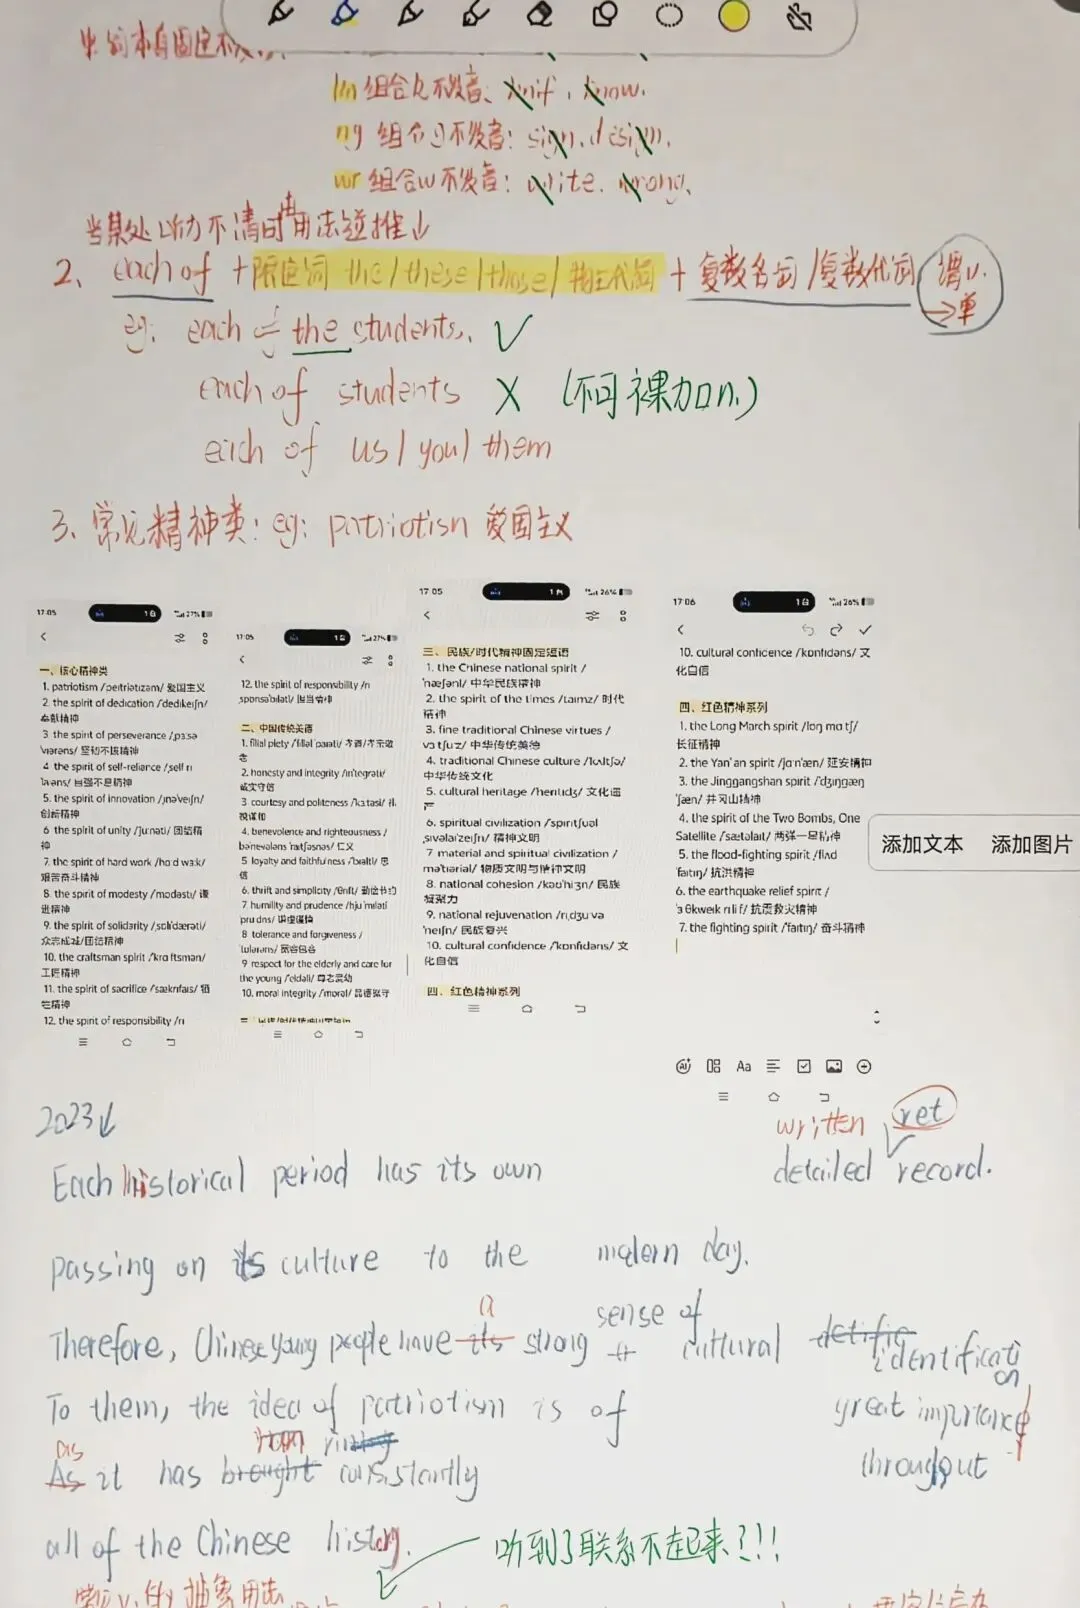 kn 组合k不发音: knif, know.
组合g不发音: sign, design.
wr 组合w不发音: write, wrong,
当某处听力不清时
2、each of + 限定词 the / these / those / 物主代词 + 复数名词 / 复数代词 谓v. → 单
eg: each of the students. √
each of students X (不可裸加n.)
each of us / you / them
3、常见精神类: eg: patriotism 爱国主义
17:05
一、核心精神类
1. patriotism /peɪtriətɪzəm/ 爱国主义
2. the spirit of dedication /ˌdedɪkeɪʃn/
奉献精神
3. the spirit of perseverance
坚韧不拔精神
4. the spirit of self-reliance
自强不息精神
5. the spirit of innovation /ˌɪnəˈveɪʃn/
创新精神
6. the spirit of unity /juːnəti/ 团结精
神
7. the spirit of hard work
艰苦奋斗精神
8. the spirit of modesty /mɒdəsti/ 谦
逊精神
9. the spirit of solidarity /ˌsɒlɪˈdærəti/
众志成城/团结精神
10. the craftsman spirit
工匠精神
11. the spirit of sacrifice /sækrɪfaɪs/ 牺
牲精神
12. the spirit of responsibility
17:05
12. the spirit of responsibility
担当精神
二、中国传统美德
1. filial piety 孝道/孝亲敬
老
2. honesty and integrity /ɪnˈteɡrəti/
诚实守信
3. courtesy and politeness 礼
貌谦和
4. benevolence and righteousness /
仁义
5. loyalty and faithfulness 忠
信
6. thrift and simplicity /θrɪft/ 勤俭节约
7. humility and prudence
谦虚谨慎
8. tolerance and forgiveness /
宽容包容
9. respect for the elderly and care for
the young /ˈeldəli/ 尊老爱幼
10. moral integrity /mɒrəl/ 品德操守
17:05
三、民族/时代精神固定短语
1. the Chinese national spirit /
ˈnæʃənl/ 中华民族精神
2. the spirit of the times /taɪmz/ 时代
精神
3. fine traditional Chinese virtues /
中华传统美德
4. traditional Chinese culture /kʌltʃə/
中华传统文化
5. cultural heritage /herɪtɪdʒ/ 文化遗
产
6. spiritual civilization /spɪrɪtʃuəl
ˌsɪvəlaɪˈzeɪʃn/ 精神文明
7. material and spiritual civilization /
məˈtɪəriəl/ 物质文明与精神文明
8. national cohesion /kəʊˈhiːʒn/ 民族
凝聚力
9. national rejuvenation /rɪˌdʒuːvə
ˈneɪʃn/ 民族复兴
10. cultural confidence /ˈkɒnfɪdəns/ 文
化自信
四、红色精神系列
17:06
10. cultural confidence /kɒnfɪdəns/ 文
化自信
四、红色精神系列
1. the Long March spirit /lɒŋ mɑːtʃ/
长征精神
2. the Yan'an spirit /jɑːnˈæn/ 延安精神
3. the Jinggangshan spirit
井冈山精神
4. the spirit of the Two Bombs, One
Satellite /ˈsætəlaɪt/ 两弹一星精神
5. the flood-fighting spirit /flʌd
faɪtɪŋ/ 抗洪精神
6. the earthquake relief spirit /
抗震救灾精神
7. the fighting spirit /ˈfaɪtɪŋ/ 奋斗精神
添加文本 添加图片
Aa
2023↓
written ret
Each historical period has its own detailed record.
passing on its culture to the modern day.
a sense of
Therefore, Chinese young people have its strong cultural identification
To them, the idea of patriotism is of great importance,
as
As it has brought consistantly throughout
all of the Chinese history.
听到了联系不起来?!!